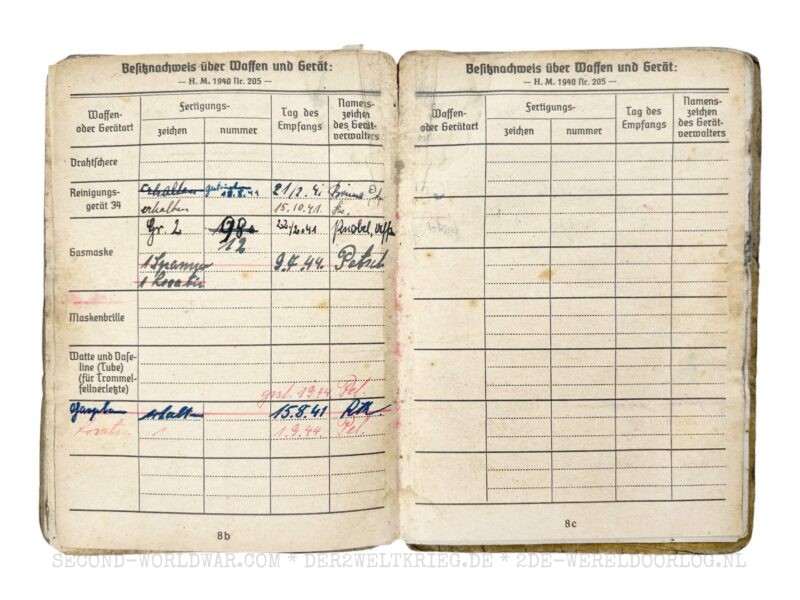 Besitznachweis über Waffen und Gerät:
— H. M. 1940 Nr. 205 —
Waffen-
oder Gerätart
Fertigungs-
zeichen
nummer
Tag des
Empfangs
Namens-
zeichen
des Gerät-
verwalters
Drahtschere
Reinigungs-
gerät 34
erhalten 18.8.41 21/2.41
erhalten 15.10.41
Gasmaske
Gr. 2 98 22/2.41
12
1 9.7.44. Petsch
1
Maskenbrille
Watte und Vase-
line (Tube)
(für Trommel-
fellverletzte)
1944 Pel
15.8.41
1 1.9.44 Pel
8b
Besitznachweis über Waffen und Gerät:
— H. M. 1940 Nr. 205 —
Waffen-
oder Gerätart
Fertigungs-
zeichen
nummer
Tag des
Empfangs
Namens-
zeichen
des Gerät-
verwalters
8c
SECOND-WORLDWAR.COM * DER2WELTKRIEG.DE * 2DE-WERELDOORLOG.NL